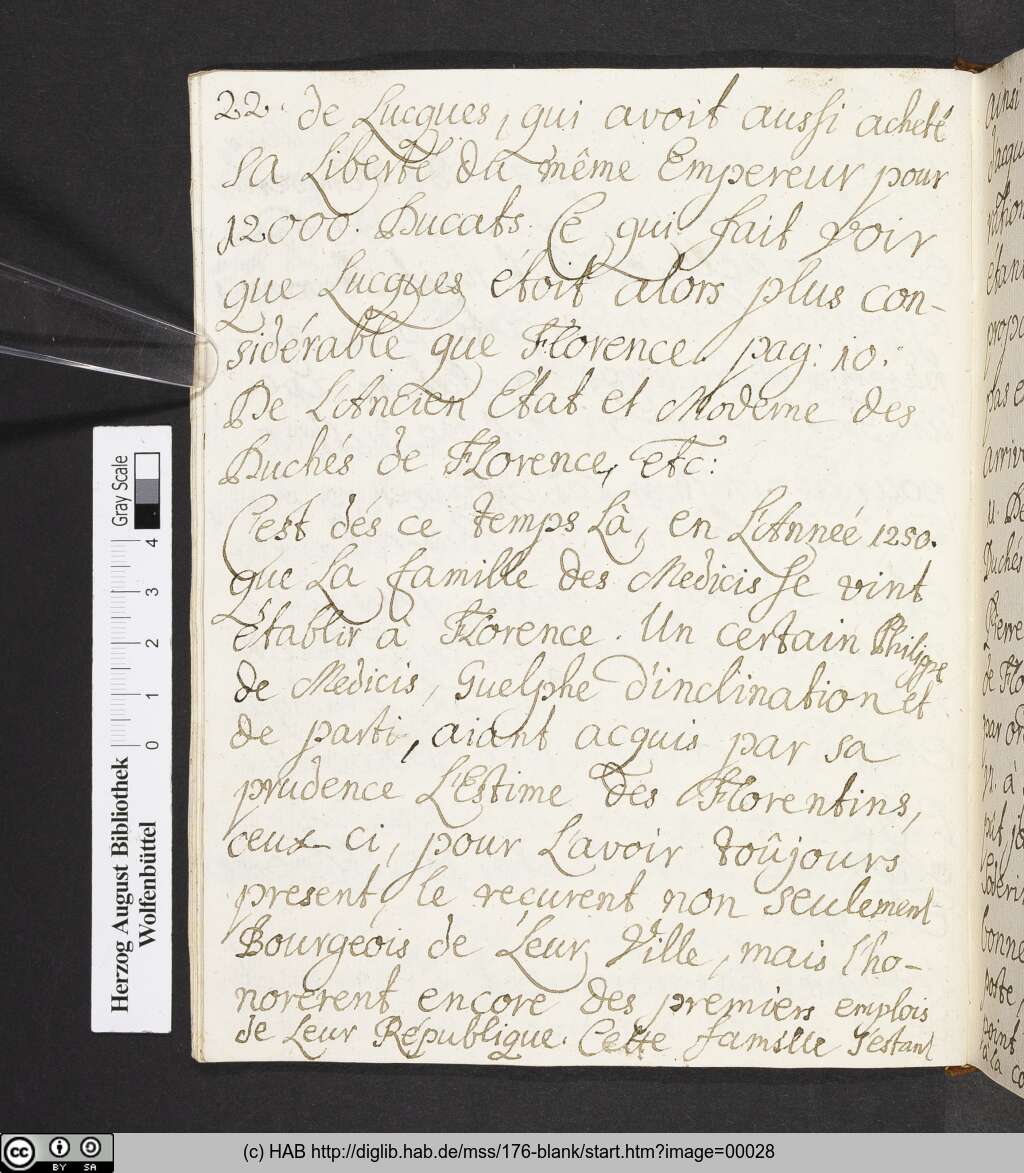 22. de Lucques, qui avoit aussi acheté
sa Liberté du même Empereur pour
12000. Ducats. Cé qui fait voir
que Lucques étoit alors plus con-
sidérable que Florence. pag: 10.
De L'Ancien État et Moderne des
Duchés de Florence, etc:
C'est dés ce temps Là, en L'Anneé 1250.
que La famille des Medicis se vint
établir à Florence. Un certain Philippe
de Medicis, Guelphe d'inclination et
de parti, aiant acquis par sa
prudence L'Estime des Florentins,
ceux ci, pour L'avoir toûjours
present, le reçurent non seulement
Bourgeois de Leur Ville, mais l'ho-
norerent encore des premiers emplois
de Leur Republique. Cette famille s'estant
Gray Scale
4 3 2 1 0
Herzog August Bibliothek
Wolfenbüttel
CC BY SA
(c) HAB http://diglib.hab.de/mss/176-blank/start.htm?image=00028